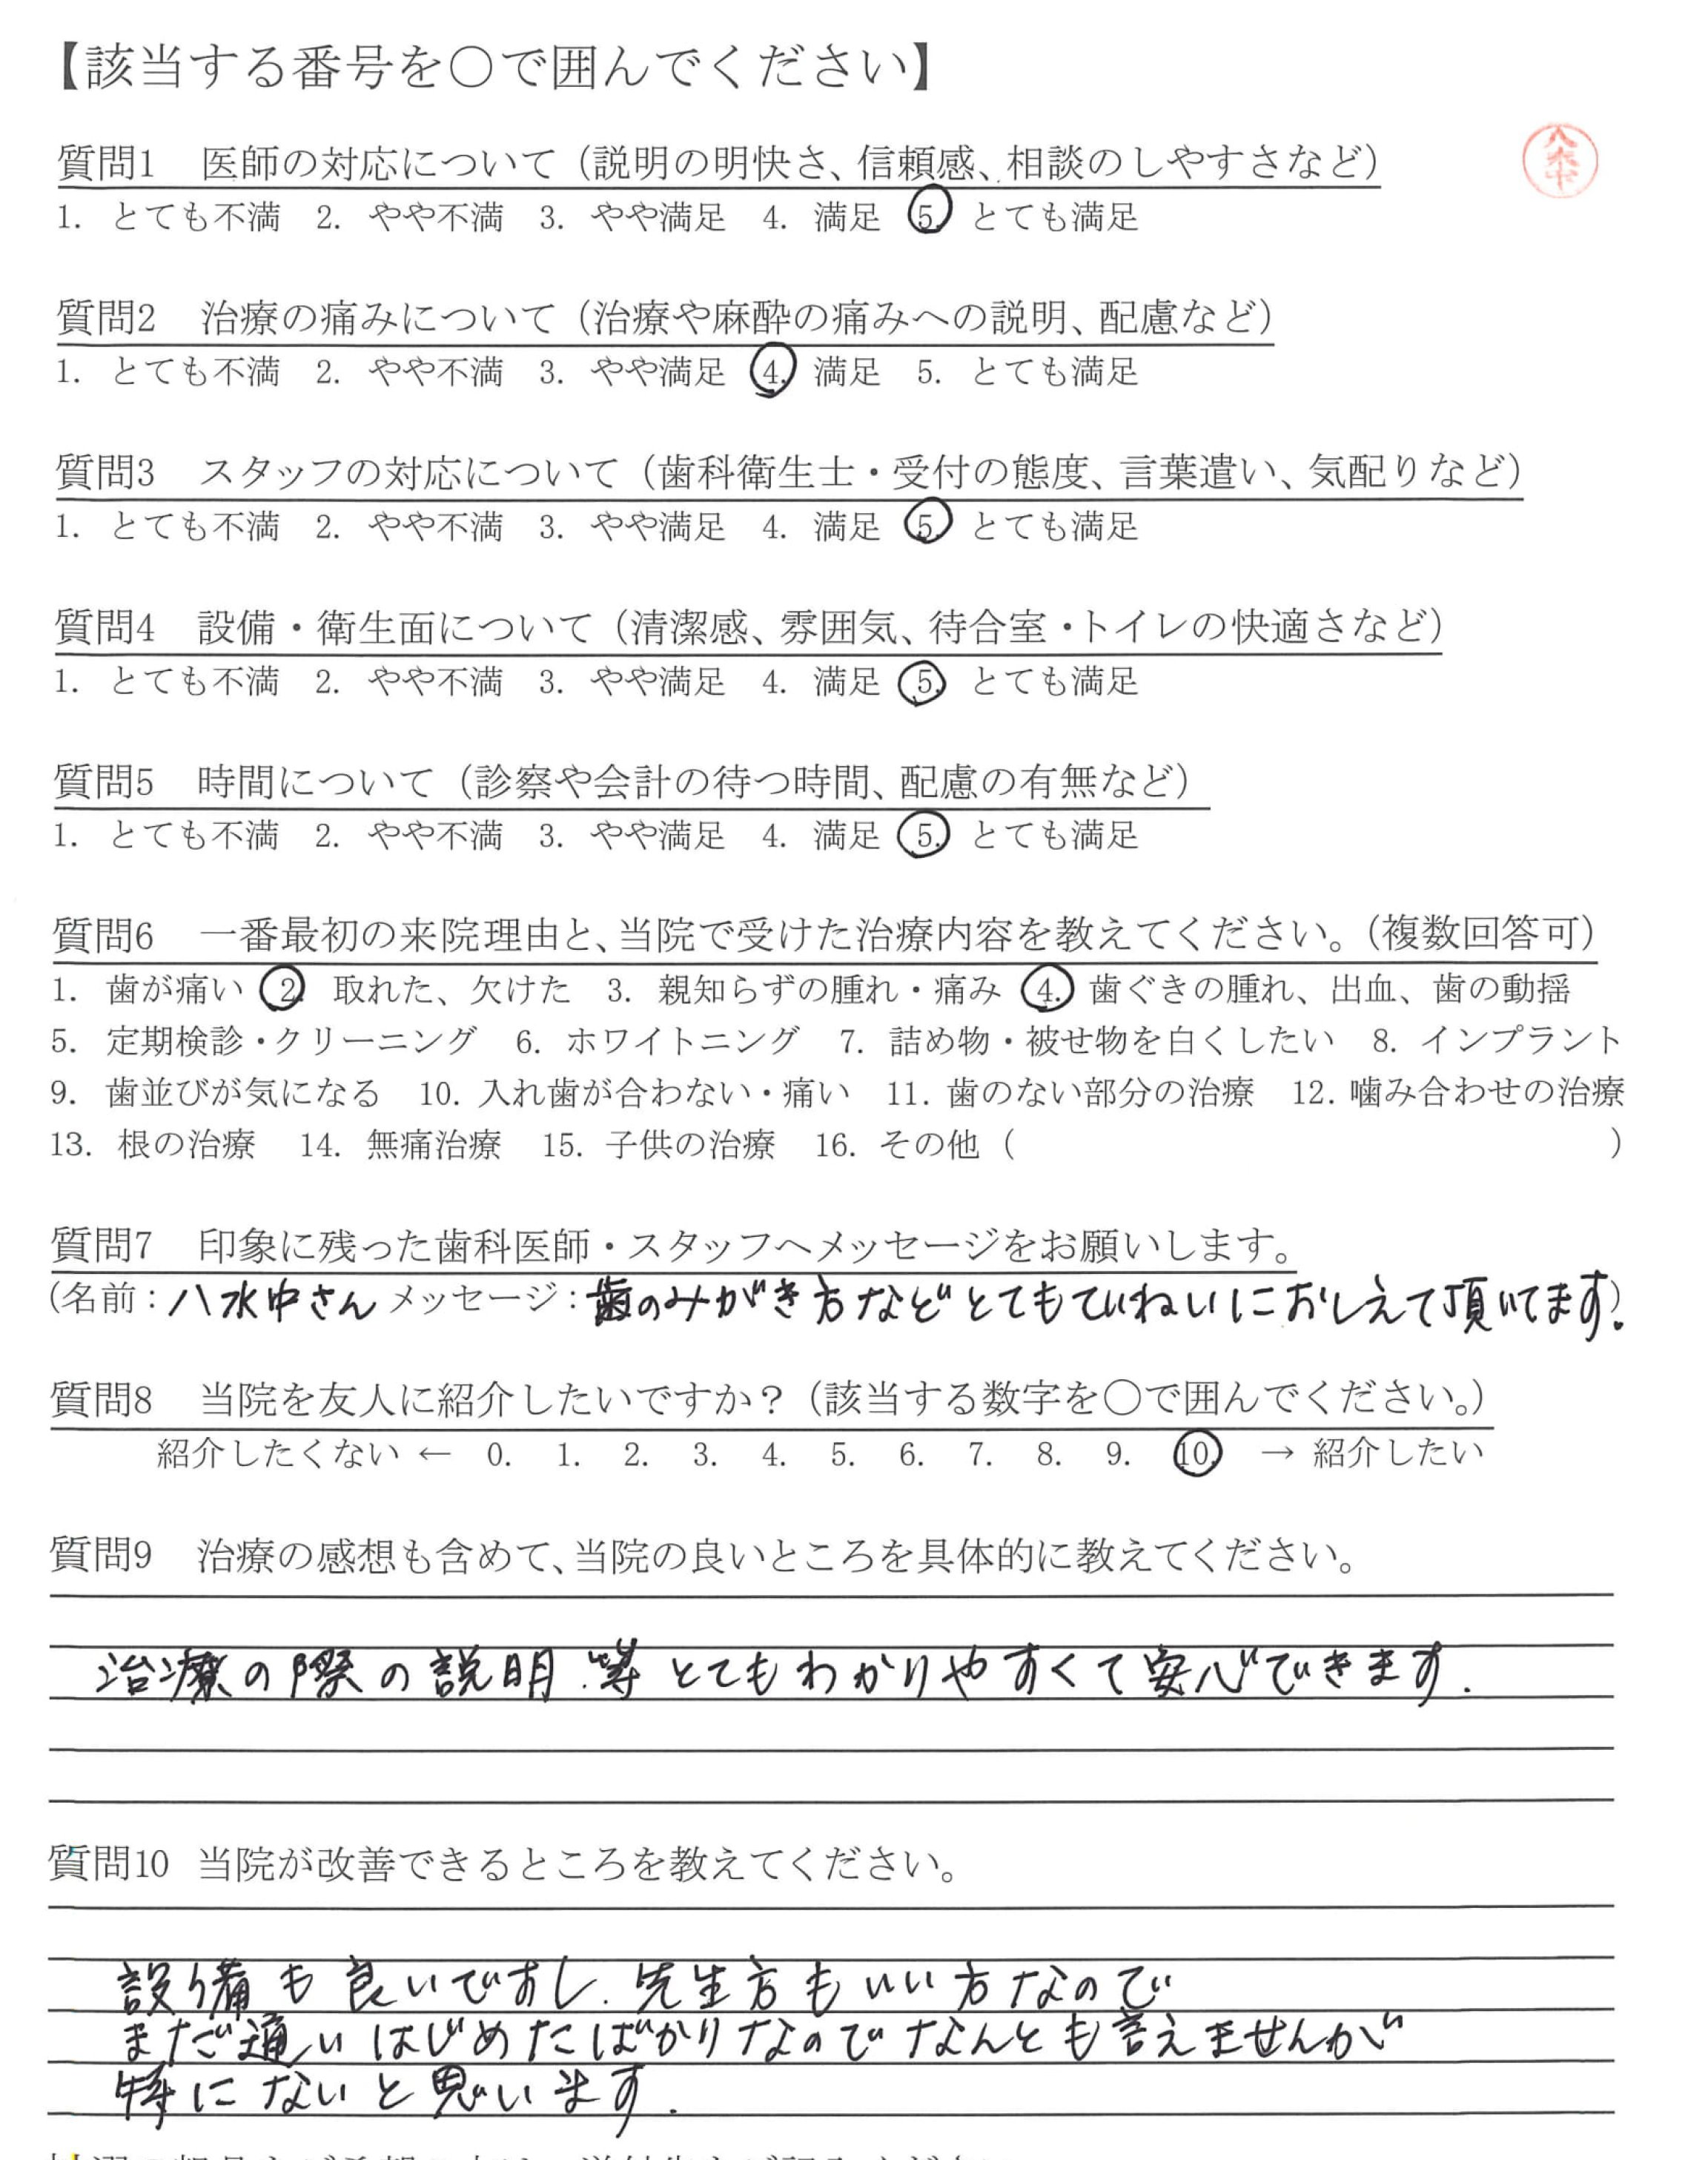 【該当する番号を○で囲んでください】
質問1　医師の対応について（説明の明快さ、信頼感、相談のしやすさなど）
1. とても不満　2. やや不満　3. やや満足　4. 満足　5. とても満足
質問2　治療の痛みについて（治療や麻酔の痛みへの説明、配慮など）
1. とても不満　2. やや不満　3. やや満足　4. 満足　5. とても満足
質問3　スタッフの対応について（歯科衛生士・受付の態度、言葉遣い、気配りなど）
1. とても不満　2. やや不満　3. やや満足　4. 満足　5. とても満足
質問4　設備・衛生面について（清潔感、雰囲気、待合室・トイレの快適さなど）
1. とても不満　2. やや不満　3. やや満足　4. 満足　5. とても満足
質問5　時間について（診察や会計の待つ時間、配慮の有無など）
1. とても不満　2. やや不満　3. やや満足　4. 満足　5. とても満足
質問6　一番最初の来院理由と、当院で受けた治療内容を教えてください。（複数回答可）
1. 歯が痛い　2. 取れた、欠けた　3. 親知らずの腫れ・痛み　4. 歯ぐきの腫れ、出血、歯の動揺
5. 定期検診・クリーニング　6. ホワイトニング　7. 詰め物・被せ物を白くしたい　8. インプラント
9. 歯並びが気になる　10. 入れ歯が合わない・痛い　11. 歯のない部分の治療　12. 噛み合わせの治療
13. 根の治療　14. 無痛治療　15. 子供の治療　16. その他（　　　）
質問7　印象に残った歯科医師・スタッフへメッセージをお願いします。
（名前：八水中さん メッセージ：歯のみがき方などとてもていねいにおしえて頂いてます.）
質問8　当院を友人に紹介したいですか？（該当する数字を○で囲んでください。）
紹介したくない ← 0. 1. 2. 3. 4. 5. 6. 7. 8. 9. 10. → 紹介したい
質問9　治療の感想も含めて、当院の良いところを具体的に教えてください。
治療の際の説明.等とてもわかりやすくて安心できます.
質問10　当院が改善できるところを教えてください。
設備も良いですし.先生方もいい方なので
まだ通いはじめたばかりなのでなんとも言えませんが
特にないと思います.